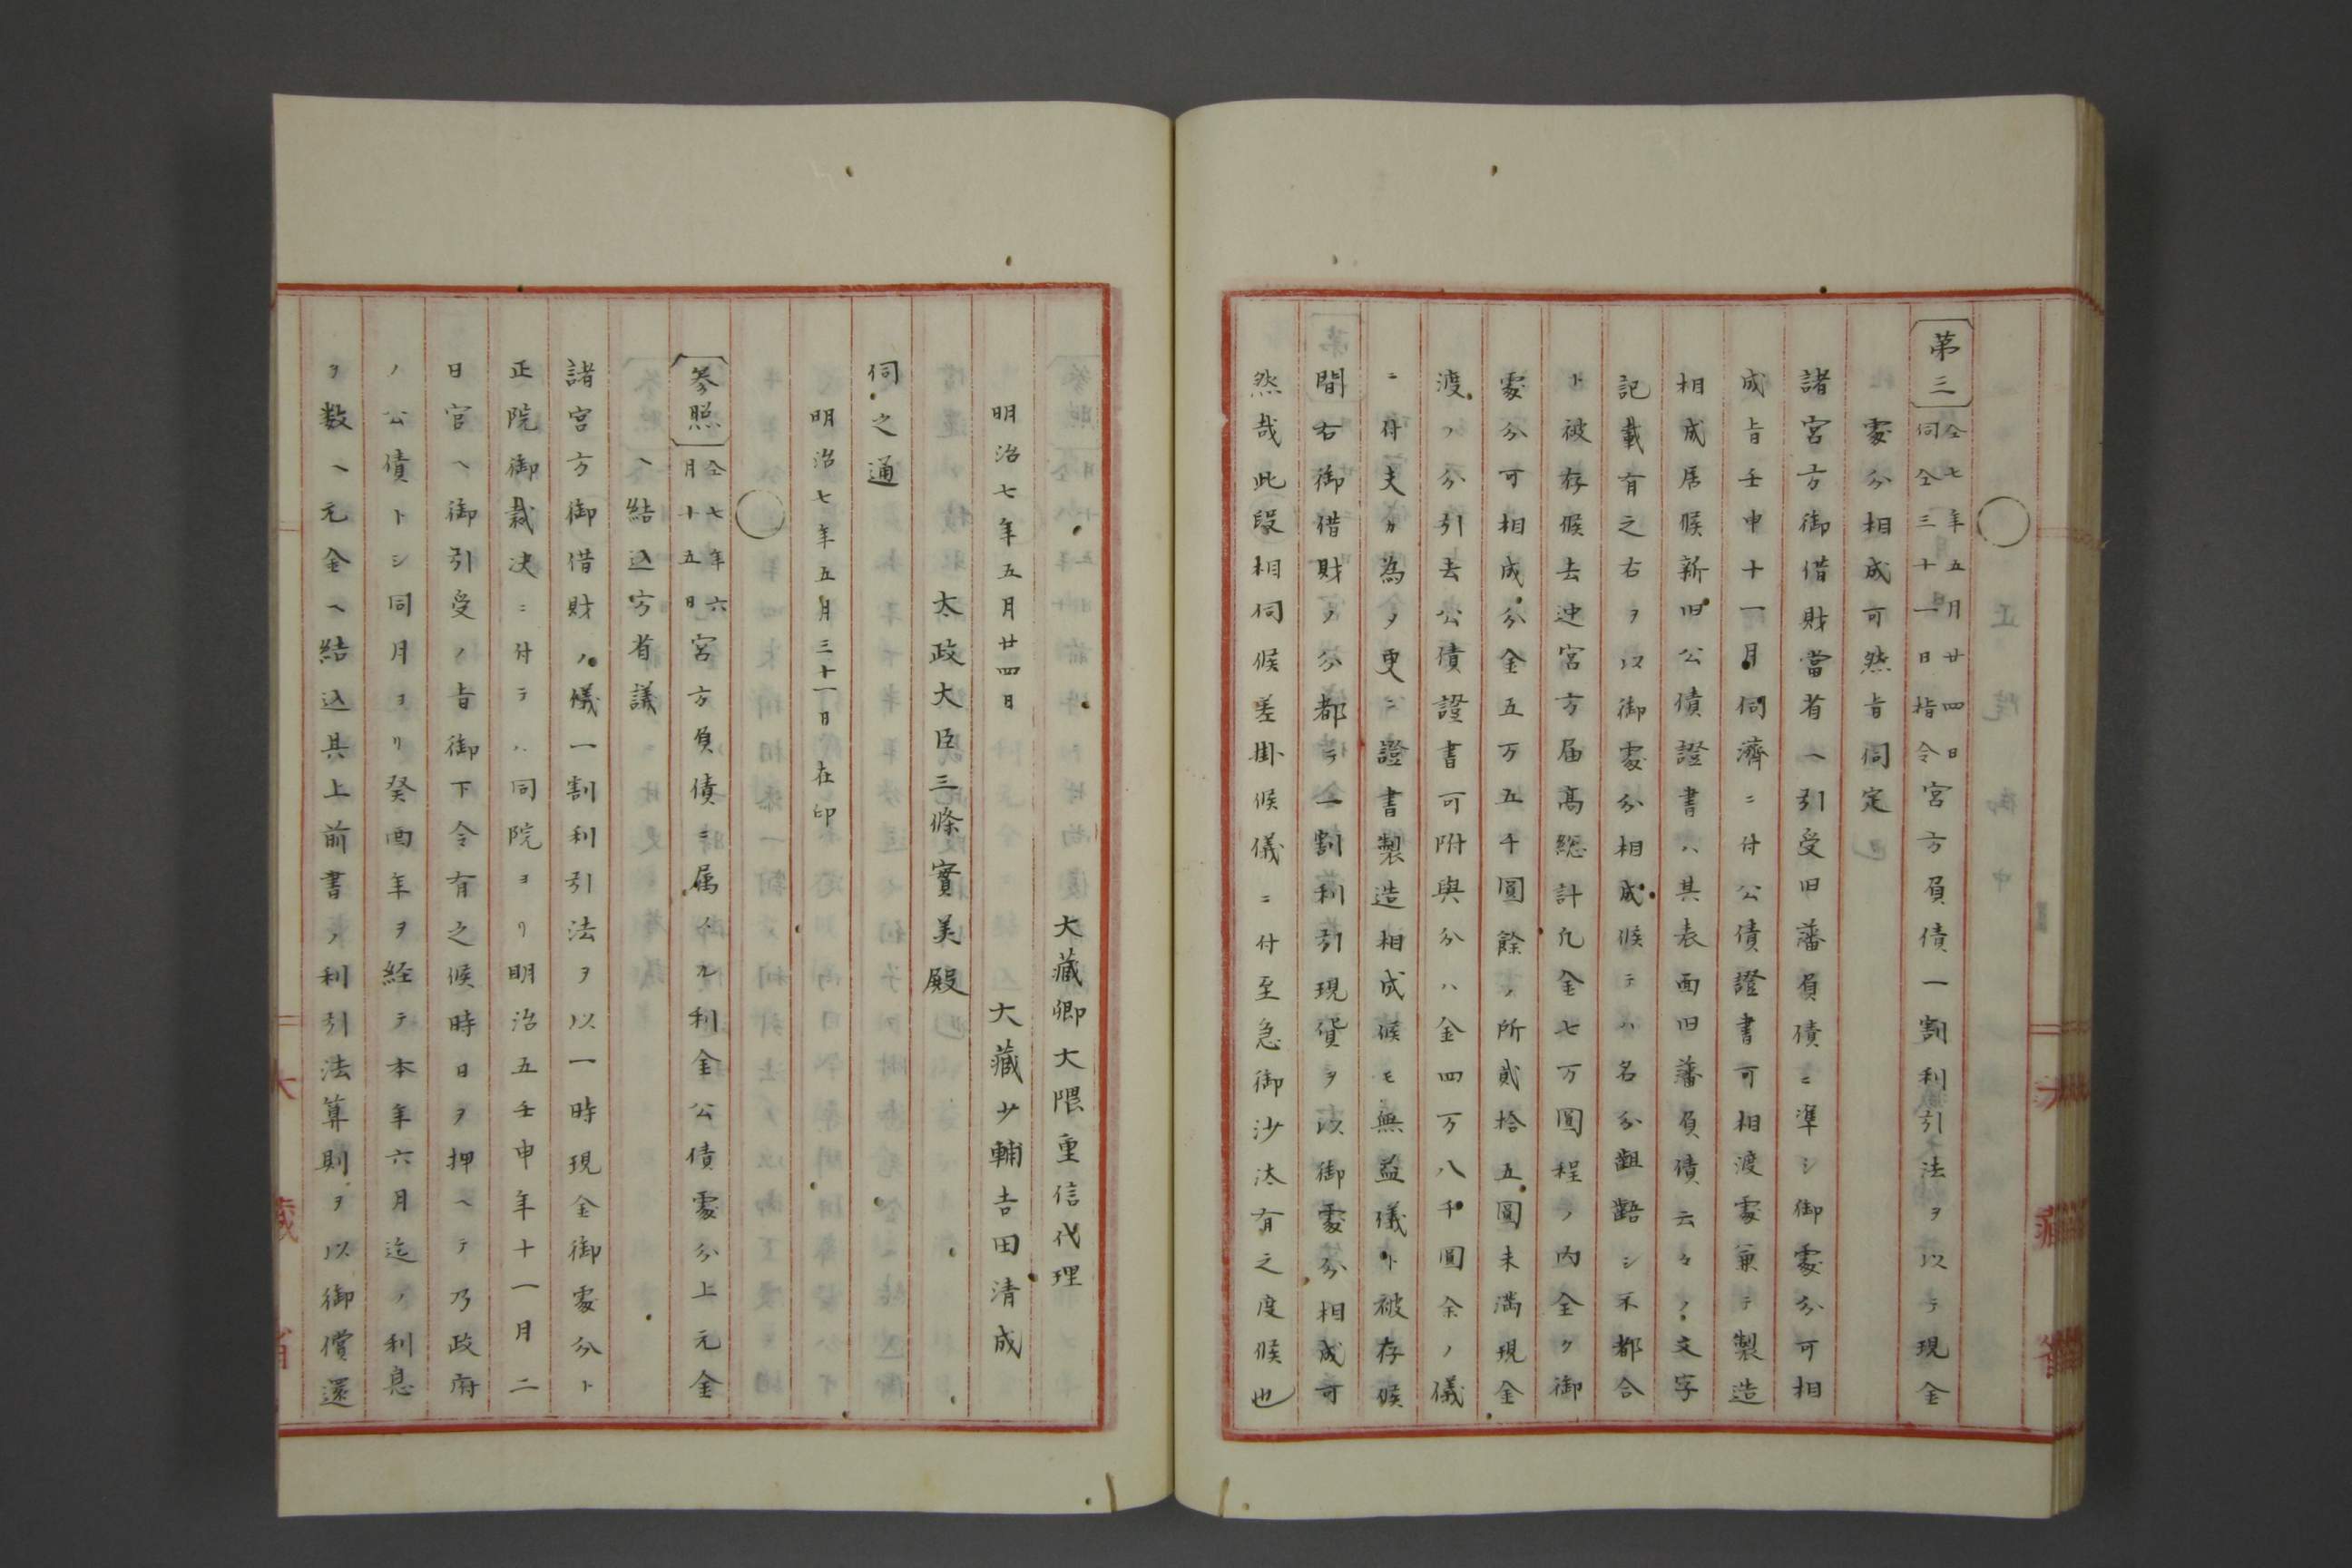 ○
第三 仝七年五月廿四日
伺仝三十一日指令
宮方負債一割利引法ヲ以テ現金
處分相成可然旨伺定
諸宮方御借財當省ヘ引受旧藩負債ニ準シ御處分可相
成旨壬申十一月伺濟ニ付公債證書可相渡處兼テ製造
相成居候新旧公債證書ハ其表面旧藩負債云々ノ文字
記載有之右ヲ以御處分相成候テハ名分齟齬シ不都合
ト被存候去迚宮方届高総計凡金七万圓程ノ内全ク御
處分可相成分金五万五千圓餘ノ所貳拾五圓未満現金
渡ノ分引去公債證書可附與分ハ金四万八千圓余ノ儀
ニ付夫カ為ヲ更ニ證書製造相成候モ無益儀ト被存候
間右御借財ノ分都テ一割利引現貨ヲ以御處分相成可
然哉此段相伺候差掛候儀ニ付至急御沙汰有之度候也
大藏卿大隈重信代理
明治七年五月廿四日 大藏少輔吉田清成
太政大臣三條實美殿
伺之通
明治七年五月三十一日在印
○
参照 仝七年六
月十五日
宮方負債ニ属スル利金公債處分上元金
ヘ結込方省議
諸宮方御借財ノ儀一割利引法ヲ以一時現金御處分ト
正院御裁决ニ付テハ同院ヨリ明治五壬申年十一月二
日官ヘ御引受ノ旨御下令有之候時日ヲ押ヘテ乃政府
ノ公債トシ同月ヨリ癸酉年ヲ経テ本年六月迄ノ利息
ヲ数ヘ元金ヘ結込其上前書ノ利引法算則ヲ以御償還
大藏省